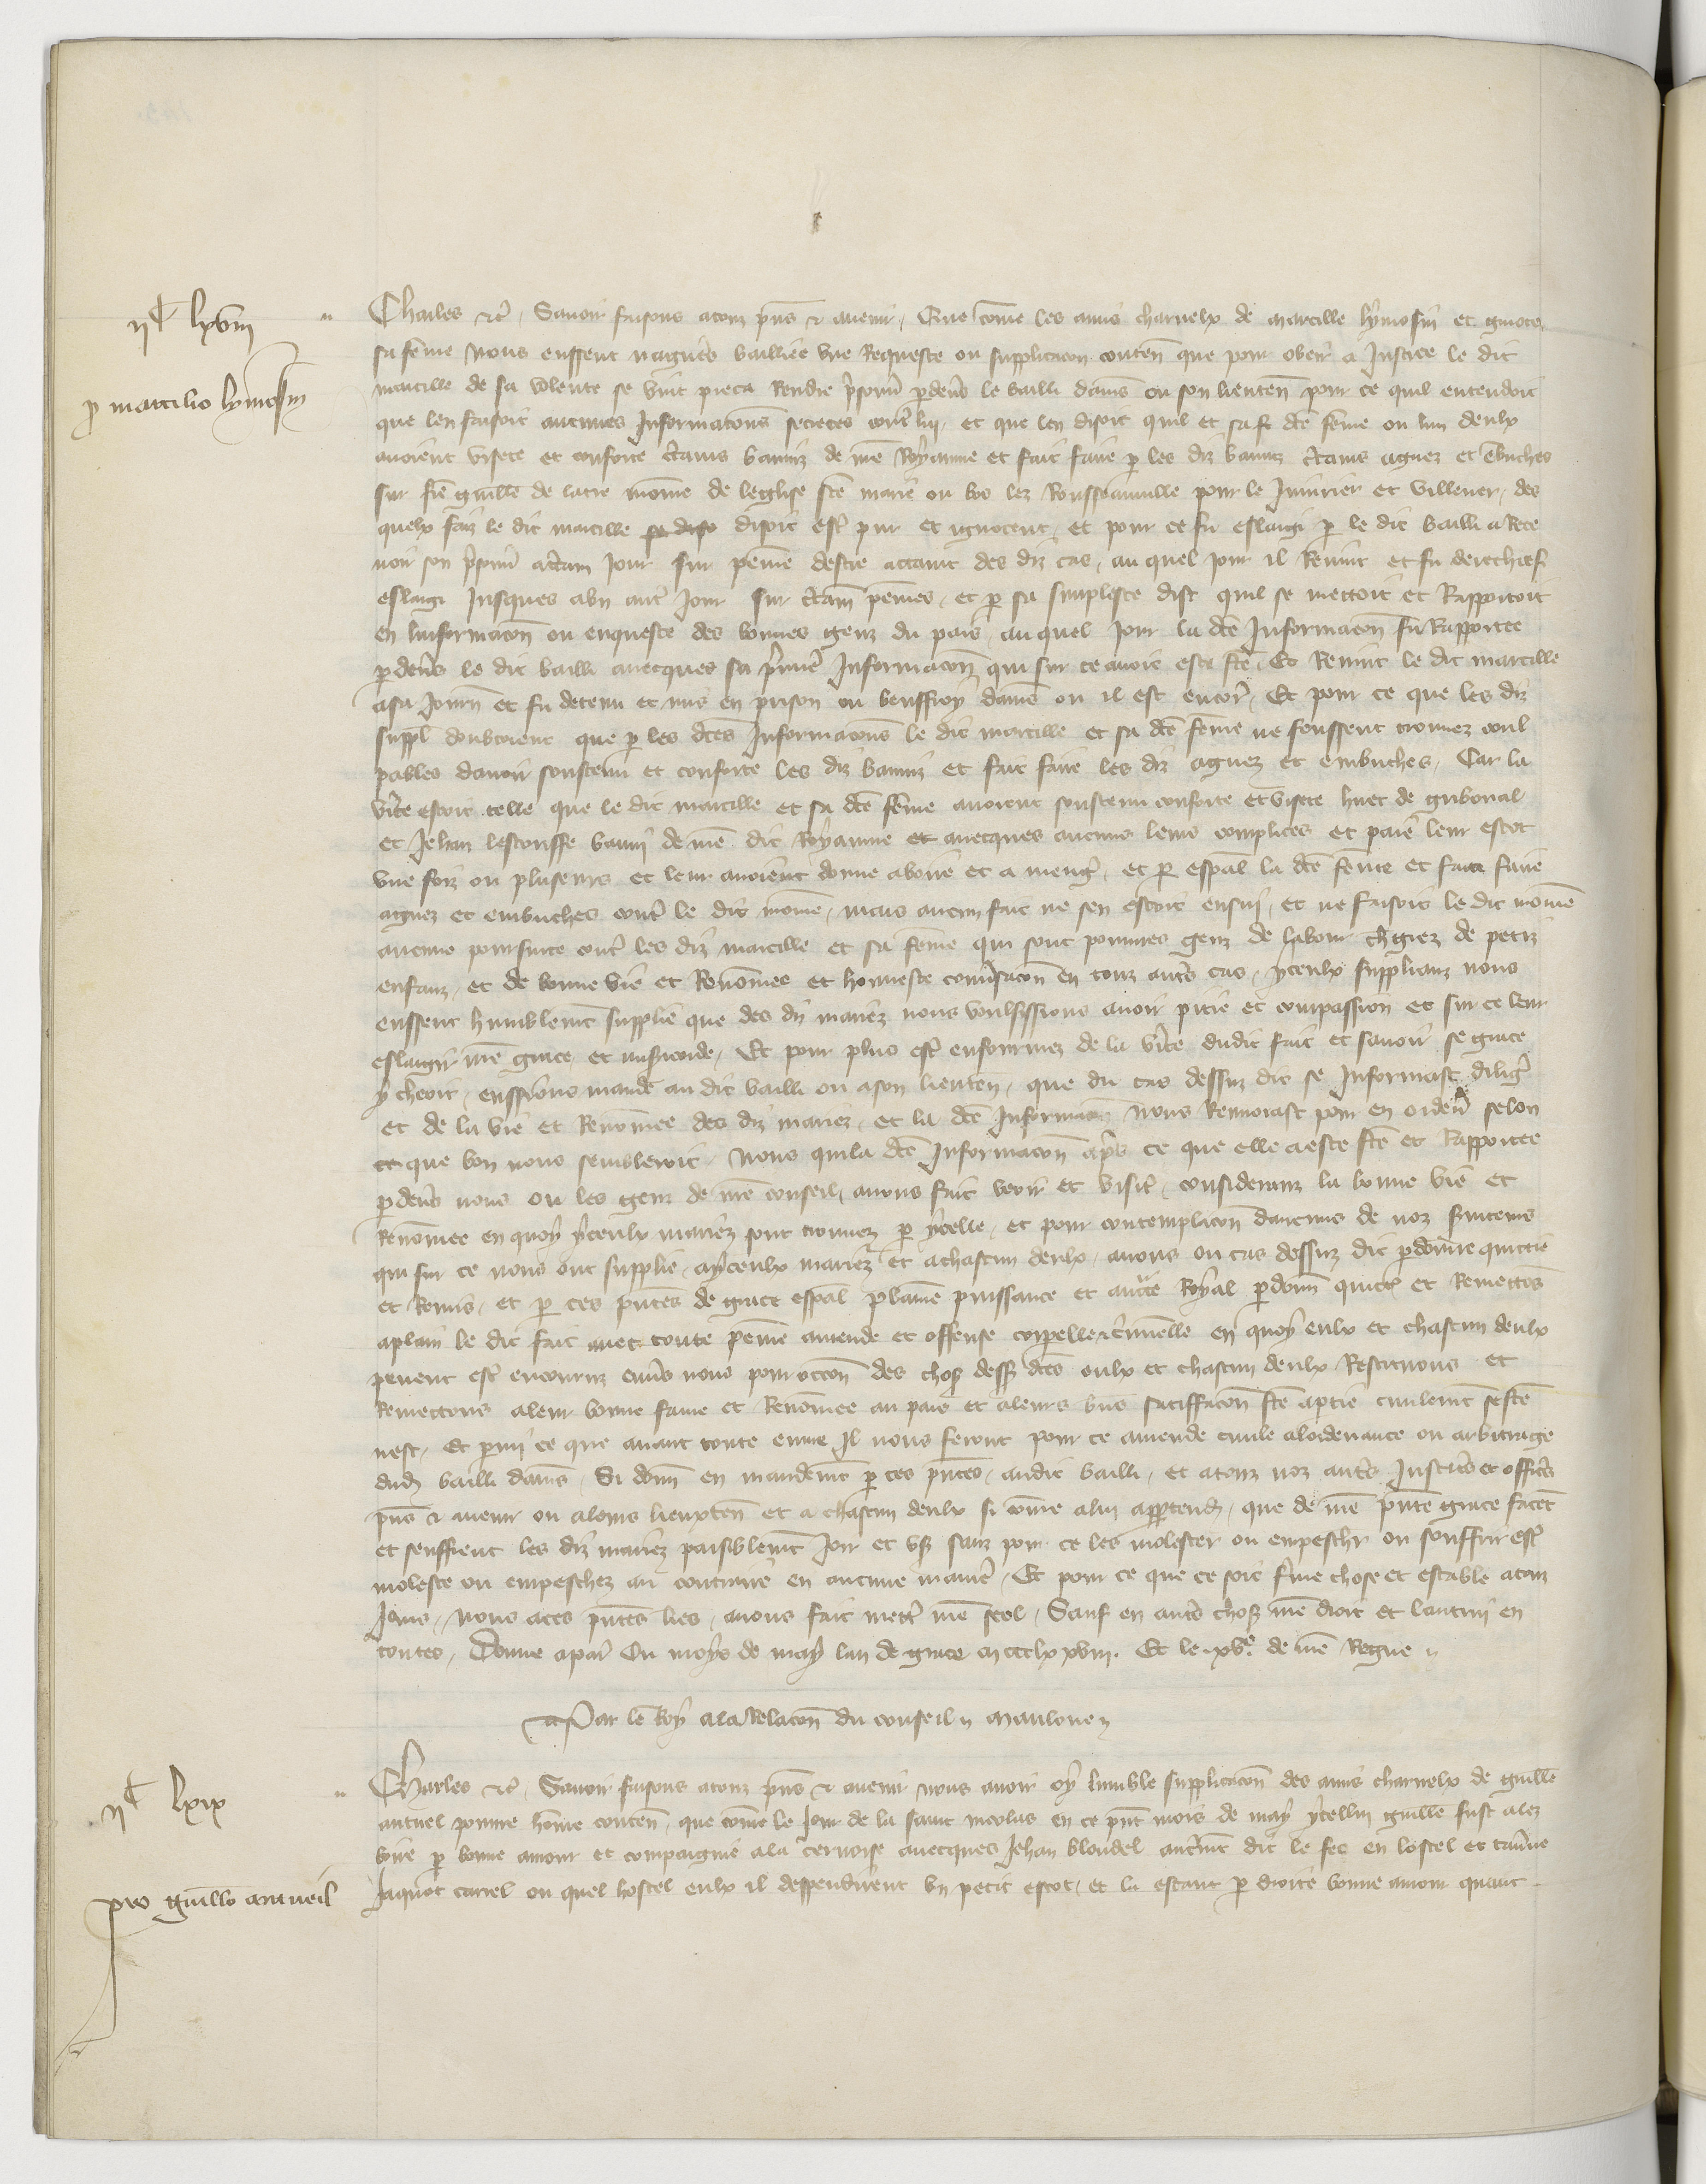 IIC LXVIII
Charles etc. Savoir faisons a touz pns & avenir, Que cōme les amis charnelx de Marcille Lymosin et
sa fēme nous eussent nagueres bailliee une Requeste ou supplicacōn conten̄ que pour obeir a Justice le dit
p Marcilio Lymosin
Marcille de sa volente se vint pieca Rendre p̄sonn̄ p devs le bailli damiens ou son lieuten̄ pour ce quil entendoit
que len faisoit aucunes Informacōns secretes contr̄ luy, et que len disoit quil et sa dcē fēme ou lun deulx
avoient visete et conforte ct̄ains banniz de nrē Royaume et fait faire p les diz banniz ct̄ains aguez et ēbuches
sur frē Guillē de moine de leglise ou bos lez pour le Iniurier et villener, des
quelx faiz le dit Marcille disoit estr̄ pur et ignocent, et pour ce fu eslargi p le dit bailli a Rete
nir son p̄sonn̄ a ct̄ain Jour sur peine destre actaint des diz cas, au quel jour il Revint et fu derechief
eslargi Jusques a un autr̄ Jour sur ct̄ain peines, et p sa simplesce dist quil se mettoit et Rapportoit
en linformacōn ou enqueste des bonnes genz du pais, au quel Jour la dcē Informacōn fu Rapportee
p devs le dit bailli avecques sa p̄mier̄ Informacōn qui sur ce avoit este fcē, Et Revint le dit Marcille
a sa Journ̄ et fu detenu et mis en prison ou beuffroy damiēs ou il est encor̄, Et pour ce que les diz
suppl̄ doubtoient que p les dcēs Informacōns le dit Marcille et sa dcē fēme ne feussent trouvez coul
pables davoir soustenu et conforte les diz banniz et fait faire les diz aguez et embuches, Car la
vrite estoit telle que le dit Marcille et sa dcē fēme avoient soustenu conforte et visete Huet de
et Jehan banniz de nrē dit Royaume et avecques aucuns leurs complices et paie leur escot
une foiz ou pluseurs et leur avoient donne a boire et a menḡ, et p espāl la dcē fēme et fait faire
aguez et embuches contr̄ le dit moine, mais aucun fait ne sen estoit ensui, et ne faisoit le dit moine
aucune poursuite contr̄ les diz Marcille et sa fēme qui sont pouvres genz de labour ch̄giez de petiz
enfanz, et de bonne vie et Renōmee et honneste conv̄sacōn en touz autrs cas, yceulx supplianz nous
eussent humblemt supplie que des diz mariez nous voulsissions avoir pitie et compassion et sur ce leur
eslargir nrē grace et misr̄icorde, Et pour plus estr̄ enformez de la vrite dudit fait et savoir se grace
y cheoit, eussions mande au dit bailli ou a son lieuten̄, que du cas dessus dit se Informast diliḡ
et de la vie et Renōmee des diz mariez, et la dcē Informacōn nous Renvoiast pour en ordenr̄ selon
ce que bon nous sembleroit, Nous qui la dcē Informacōn ap̄s ce que elle a este fcē et Rapportee
p devs nous ou les genz de nrē conseil, avons fait veoir et visitr̄, considerans la bonne vie et
Renōmee en quoy yceulx mariez sont trouvez p ycelle, et pour contemplacōn daucuns de noz s̄viteurs
qui sur ce nous ont supplie, a yceulx mariez et a chascun deulx, avons ou cas dessus dit p donne quictie
et Remis, et p ces pn̄tes de grace espāl plaine puissance et aucte Royal p donn̄ quict̄ et Remettōs
a plain le dit fait avec toute peine amende et offense corpelle & c̄minelle en quoy eulx et chascun deulx
pevent estr̄ encouruz env̄s nous pour occōn des chosēs dess̄ dcēs eulx et chascun deulx Restituons et
Remettons a leur bonne fame et Renōmee au pais et a leurs bns satiffacōn fcē a ptie civilemt se fcē
nest, Et p my ce que avant toute euvre Il nous feront pour ce amende civile a lordenance ou arbitrage
dud bailli damiēs, Si donn̄ en mandemt p ces pn̄tes, audit bailli, et a touz noz autrs Justicrs et officrs
pns & avenir ou a leurs lieuxten̄ et a chascun deulx si cōme a lui apptendr̄, que de nrē pn̄te grace facēt
et seuffrent les diz mariez paisiblemt Joir et us̄ sanz pour ce les molester ou empeschr̄ ou souffrir estr̄
molestez ou empeschez au contraire en aucune manier̄, Et pour ce que ce soit f̄me chose et estable a touz
Jours, Nous a ces pn̄tes lr̄es, avons fait mettr̄ nrē scel, Sauf en autrs chosēs nrē droit et lautruy en
toutes, Donne a par̄ Ou moys de may lan de grace M CCC LX XVIII. Et le XVe. de nrē Regne
Par le Roy a la Relacōn du conseil Maulone
IIC LXIX
Charles etc. Savoir faisons a touz pns & avenir nous avoir oy lumble supplicacōn des amis charnelx de Guillē
antuel pouvre hōme conten̄, que cōme le Jour de la saint Nicolas en ce pn̄t mois de may ycellui Guillē fust alez
boire p bonne amour et compaignie a la cervoise avecques Jehan Blondel autrmt dit le fee en lostel et tav̄ne
pro Guillō antueil
Jaquot carrel ou quel hostel eulx il despendirent un petit escot, et la estant p droite bonne amour quant